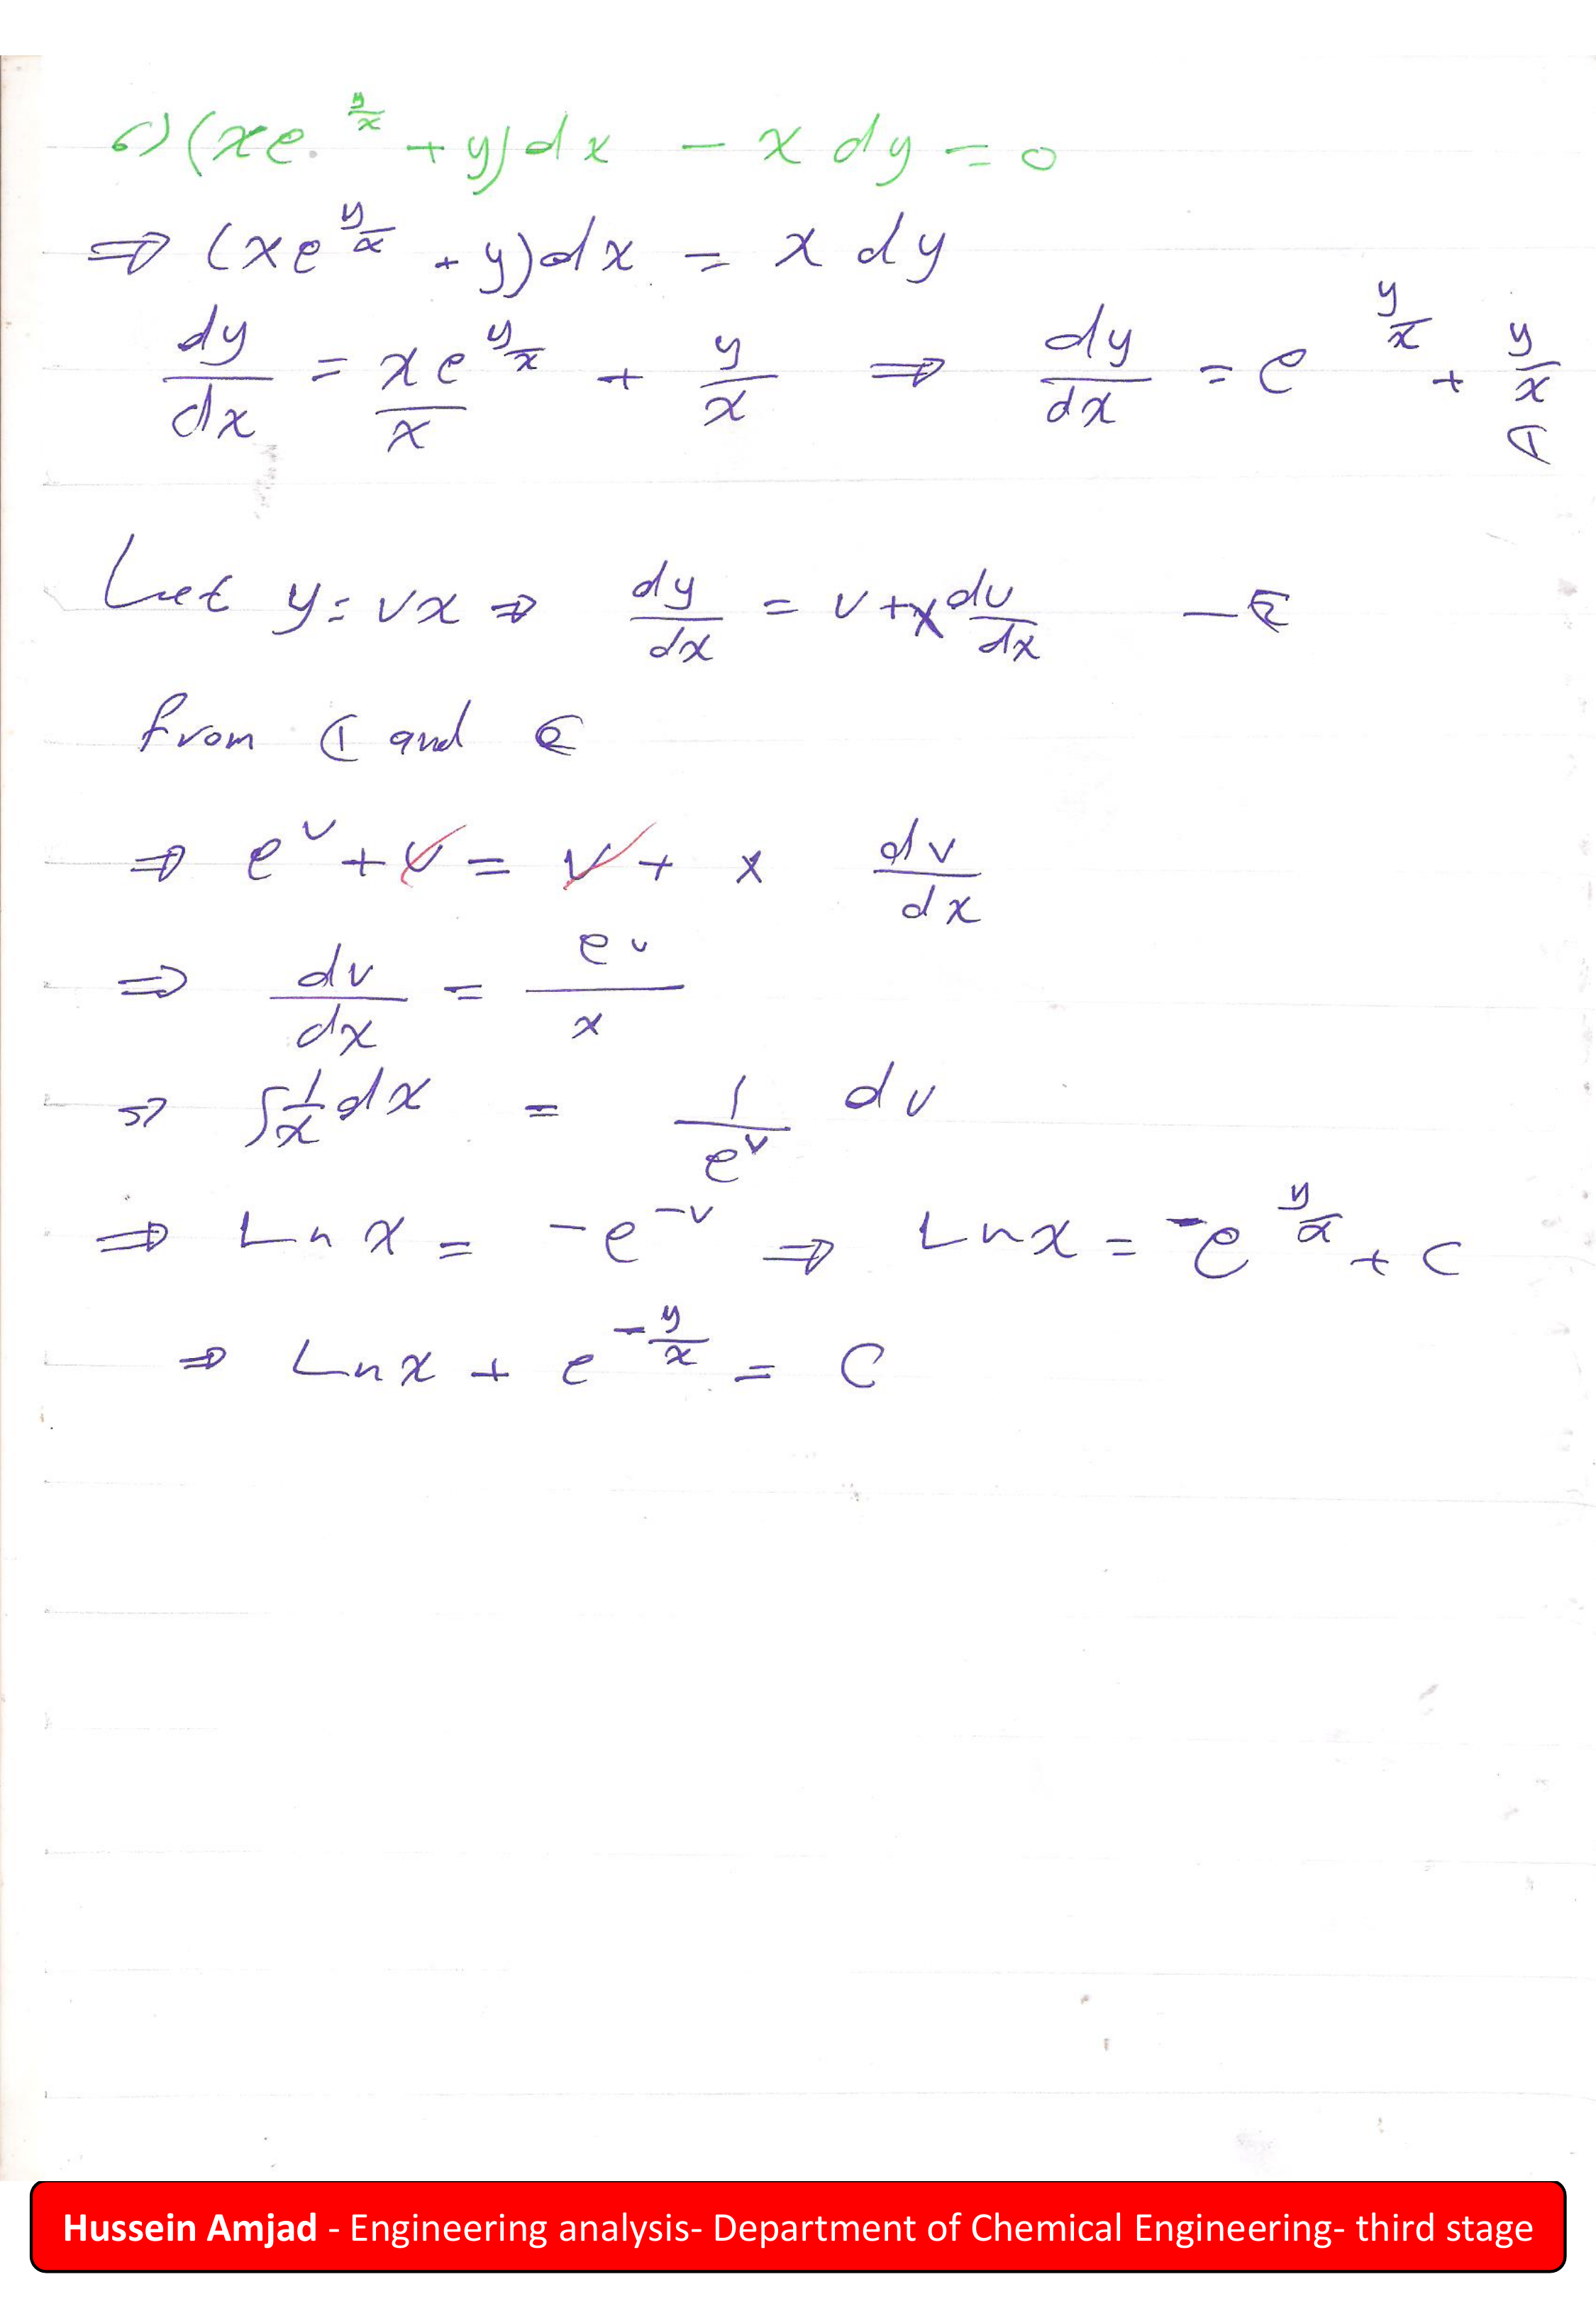 6) (xe^{y/x} + y)dx - x dy = 0
⇒ (xe^{y/x} + y)dx = x dy
dy/dx = xe^{y/x}/x + y/x ⇒ dy/dx = e^{y/x} + y/x ①
Let y = vx ⇒ dy/dx = v + x dv/dx — ②
from ① and ②
⇒ e^v + v = v + x dv/dx
⇒ dv/dx = e^v/x
⇒ ∫ 1/x dx = 1/e^v dv
⇒ Ln x = -e^{-v} ⇒ Ln x = -e^{y/x} + C
⇒ Ln x + e^{-y/x} = C
Hussein Amjad - Engineering analysis- Department of Chemical Engineering- third stage